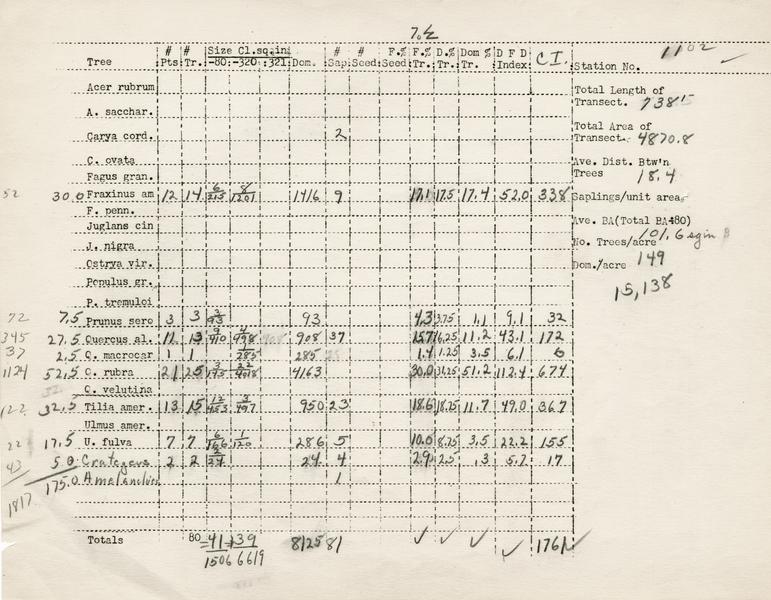 70½
# # Size Cl.sq.in. # # F.% F.% D.% Dom % D F D C.I. 1102
Tree Pts. Tr. -80: -320: :321 Dom. Sap. Seed. Seed Tr. Tr. Tr. Index Station No.
Acer rubrum Total Length of
Transect. 738'
A. sacchar.
Total Area of
Carya cord. 2 Transect. 4870.8
C. ovata Ave. Dist. Btw'n
Fagus gran. Trees 18.4
52 30.0 Fraxinus am 12 14 6/215 8/1201 1416 9 17.1 17.5 17.4 52.0 338 Saplings/unit area
F. penn.
Juglans cin Ave. BA(Total BA÷80) 101.6 sq in
J. nigra No. Trees/acre 149
Ostrya vir. Dom./acre 15,138
Populus gr.
P. tremuloi
72 7.5 Prunus sero 3 3 3/93 93 4.3 3.75 1.1 9.1 32
345 27.5 Quercus al. 11 13 9/410 4/498 908 37 15.7 16.25 11.2 43.1 172
37 2.5 Q. macrocar 1 1 /285 285 1.4 1.25 3.5 6.1 6
1124 52.5 Q. rubra 21 25 3/145 22/4018 4163 30.0 31.25 51.2 112.4 674
Q. velutina
122 32.5 Tilia amer. 13 15 12/453 3/497 950 23 18.6 18.75 11.7 49.0 367
Ulmus amer.
22 17.5 U. fulva 7 7 6/166 1/120 286 5 10.0 8.75 3.5 22.2 155
43 5.0 Crategeus 2 2 2/24 24 4 2.9 2.5 .3 5.7 17
1817 175.0 Amelanchier 1
Totals 80 = 41/1506 + 39/6619 8125 81 ✓ ✓ ✓ ✓ 1761 ✓